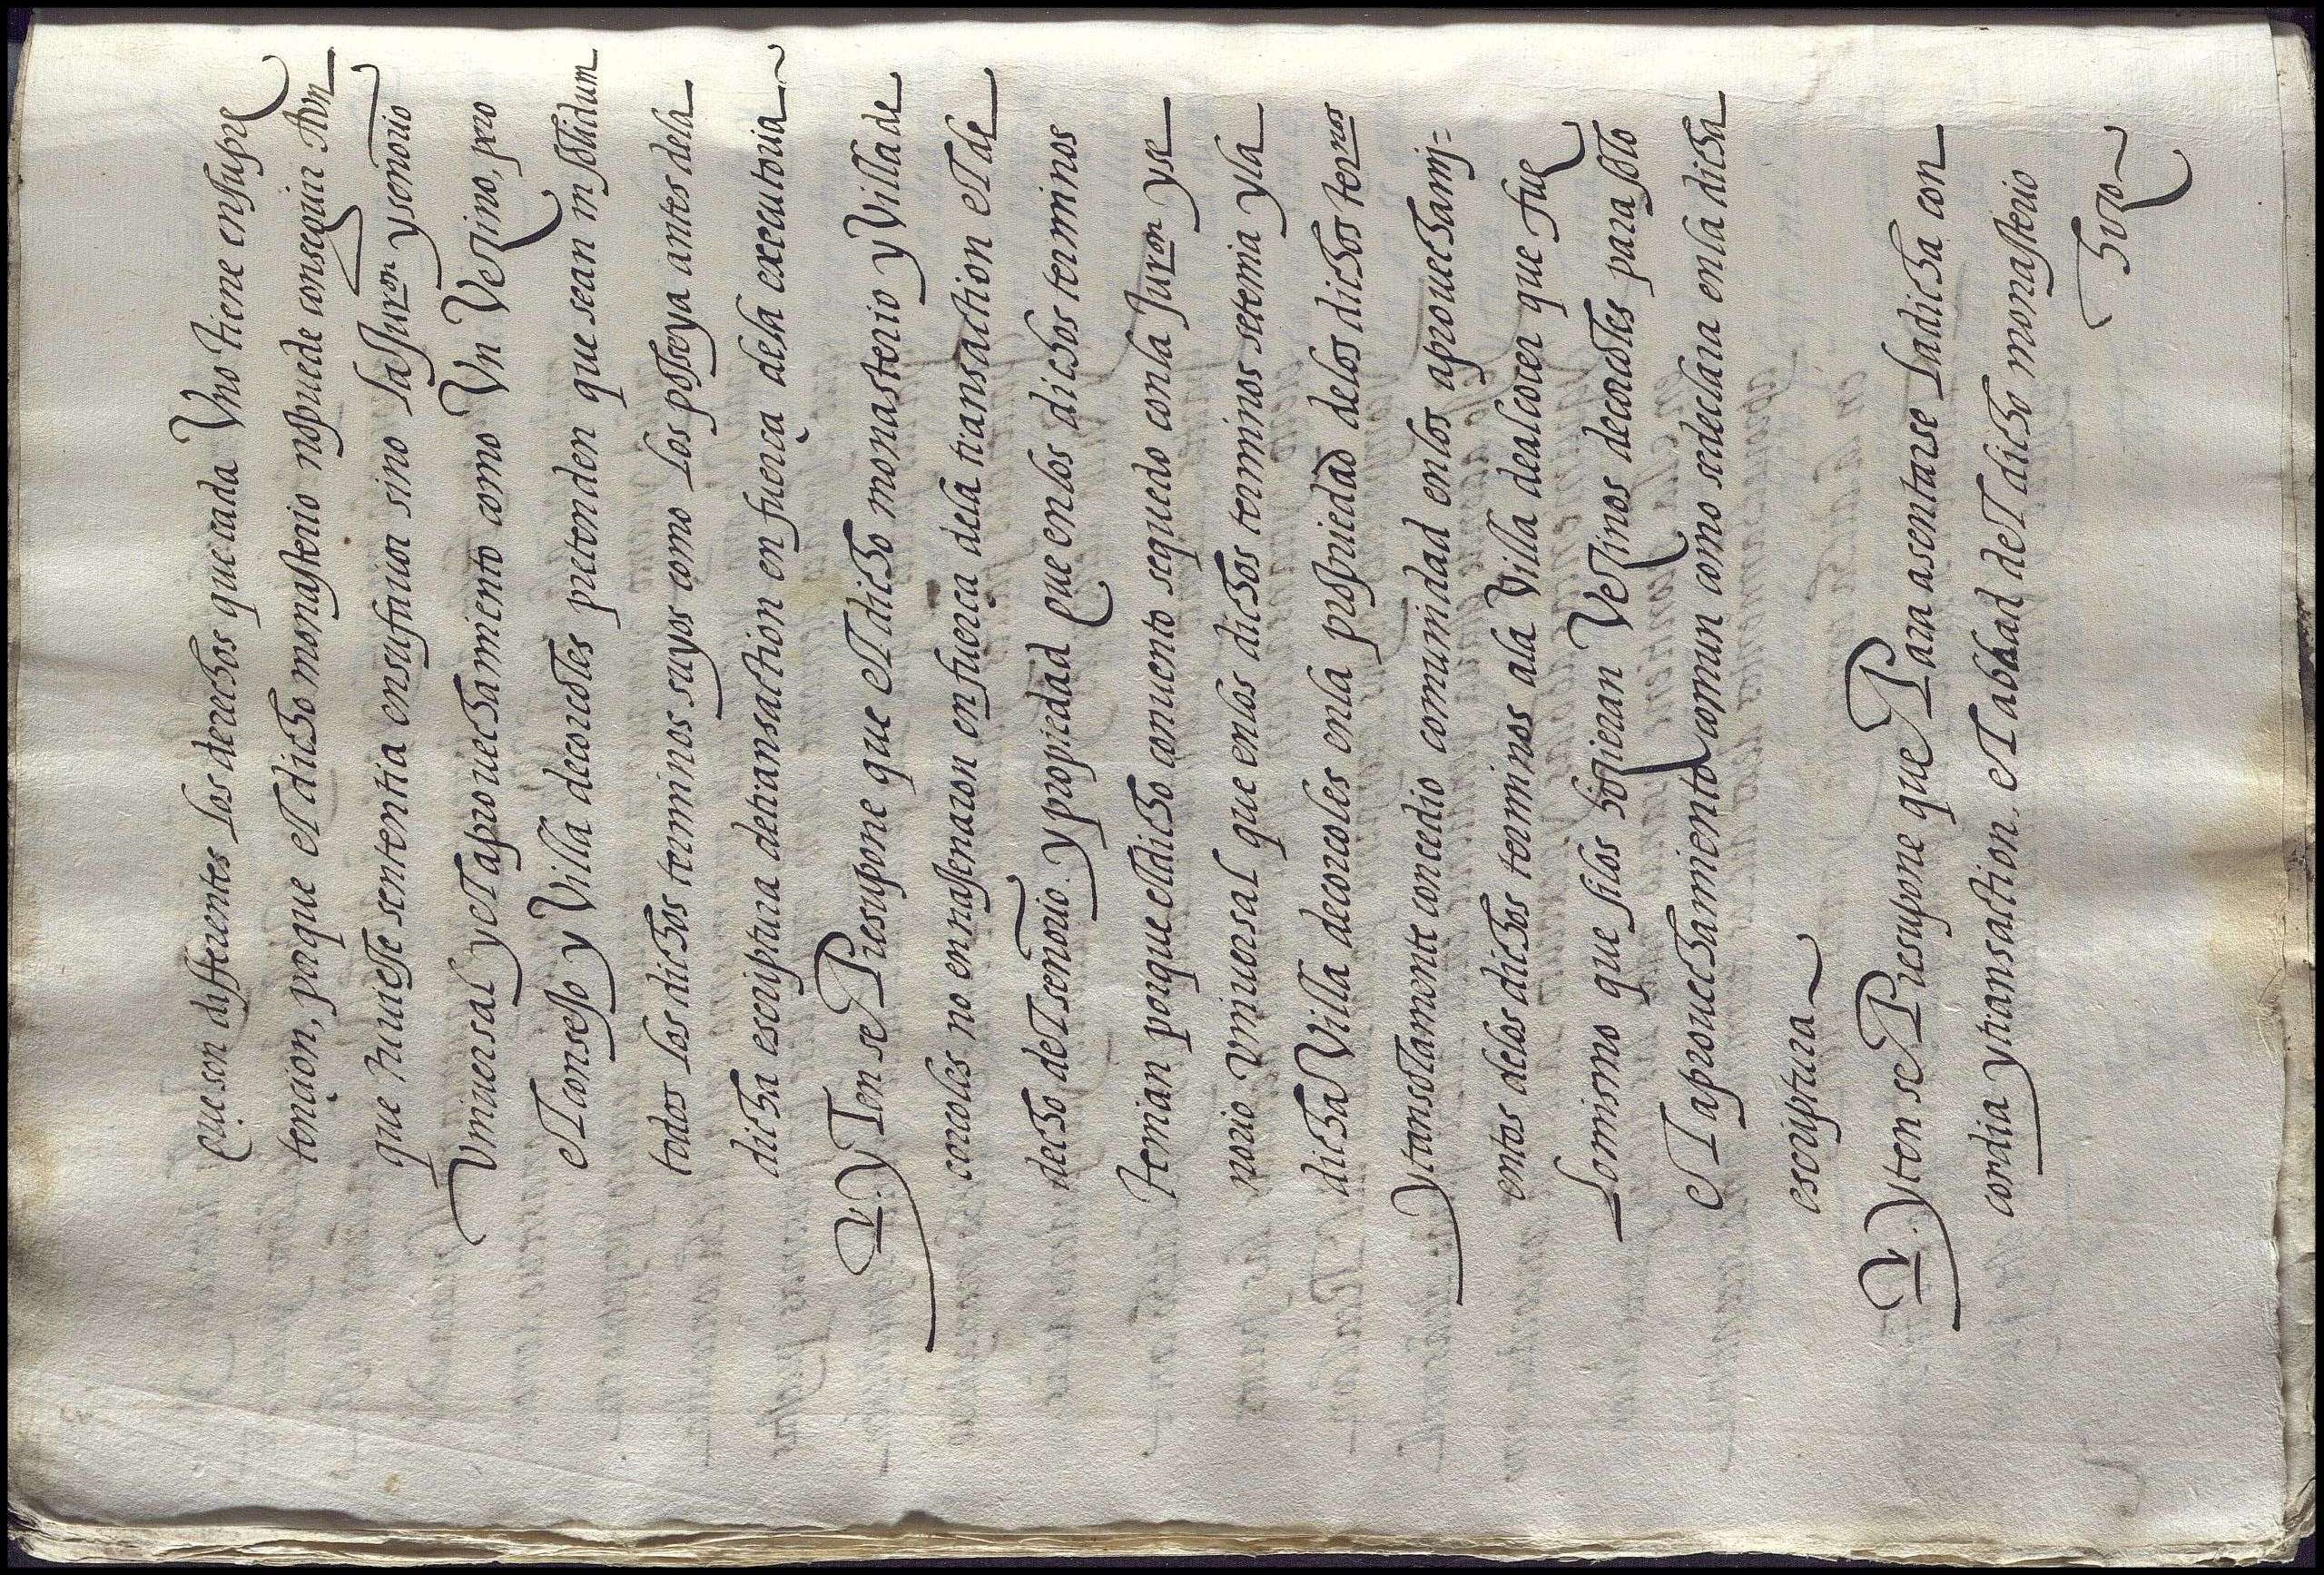 que son differentes Los derechos que cada Vno tiene en su pre
tençion, paque el dicho monasterio no puede conseguir Avn
que tuuiesse sententia en su fauor sino La Juron y señorio
Vniuersal y el aprouechamiento como Vn Vezino, pro
el conseJo y Villa de corcoles pretenden que sean in solidum
todos los dichos terminos suyos como Los posseya antes de la
dicha escriptura de transaction en fuerça de la executoria
V. yten se Presupone que el dicho monasterio y Villa de
corcoles no ennagenaron en fuerça de la transaction el de
decho del señorio y propiedad que en los dichos terminos
tenian porque el dicho conuento se quedo con la Juron y se
norio Vniuersal que en los dichos terminos se tenia y la
dicha Villa de corcoles en la propriedad de los dichos ternos
y tan solamente concedio comunidad en los aprouechami=
entos de los dichos terminos a la Villa de alcocer que fue
Lo mismo que si los hizieran Vezinos de corcoles para solo
el aprouechamiento comun como se declara en la dicha
escriptura
V. yten se Presupone que Para asentarse La dicha con
cordia y transaction el abbad del dicho monasterio
hizo